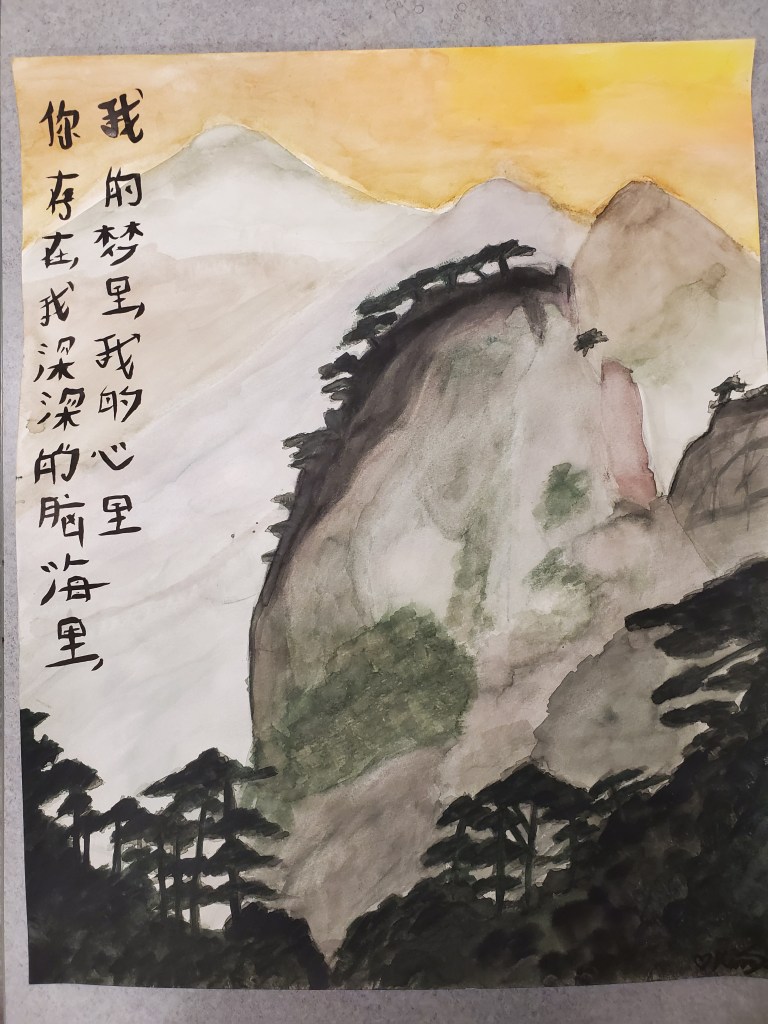 你存在,我深深的脑海里,
我的梦里,我的心里